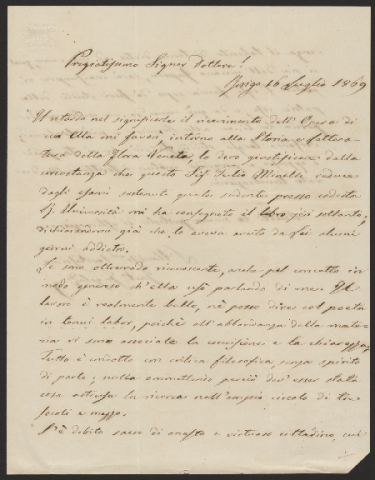 Pregiatissimo Signor Dottore!
16 Luglio 1869
Il ritardo nel significarle il ricevimento dell'Opera di
cui Ella mi favorì, intorno alla Storia e Lettera-
tura della Flora Veneta, lo devo giustificare dalla
circostanza che questo Sig. Giulio Minelli reduce
dagli esami sostenuti quale studente presso codesta
R. Università mi ha consegnato il libro jeri soltanto,
dichiarandomi già che lo aveva avuto da Lei alcuni
giorni addietro.
Le sono oltremodo riconoscente, anche pel concetto in
modo generoso ch'Ella usò parlando di me. Il
lavoro è realmente bello, nè posso dire col poeta
in tenui labor, poichè all'abbondanza della mate-
ria vi sono associate la concisione e la chiarezza.
Tutto è condotto con critica filosofica, senza spirito
di parte; nulla ommettendo perciò che esser stata
cosa estranea la ricerca nell'ampio circolo di tre
secoli e mezzo.
È debito sacro di onesto e virtuoso cittadino, cui